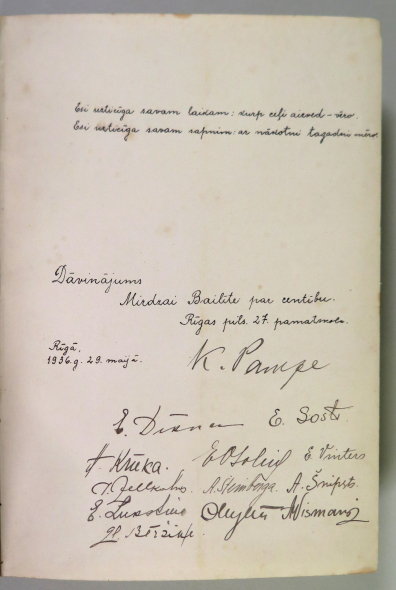 Esi uzticīga savam laikam: kurp ceļi aizved – vēro.
Esi uzticīga savam sapnim: ar nākotni tagadni mēro.
Dāvinājums
Mirdzai Bailīte par centību.
Rīgas pils. 27. pamatskola.
Rīgā,
1936.g. 29. maijā.
K. Pampe
E. E. Sost
Krūka. E. Vinters
A. Šteinberga A. Šnipsts
E.
Bērziņš.